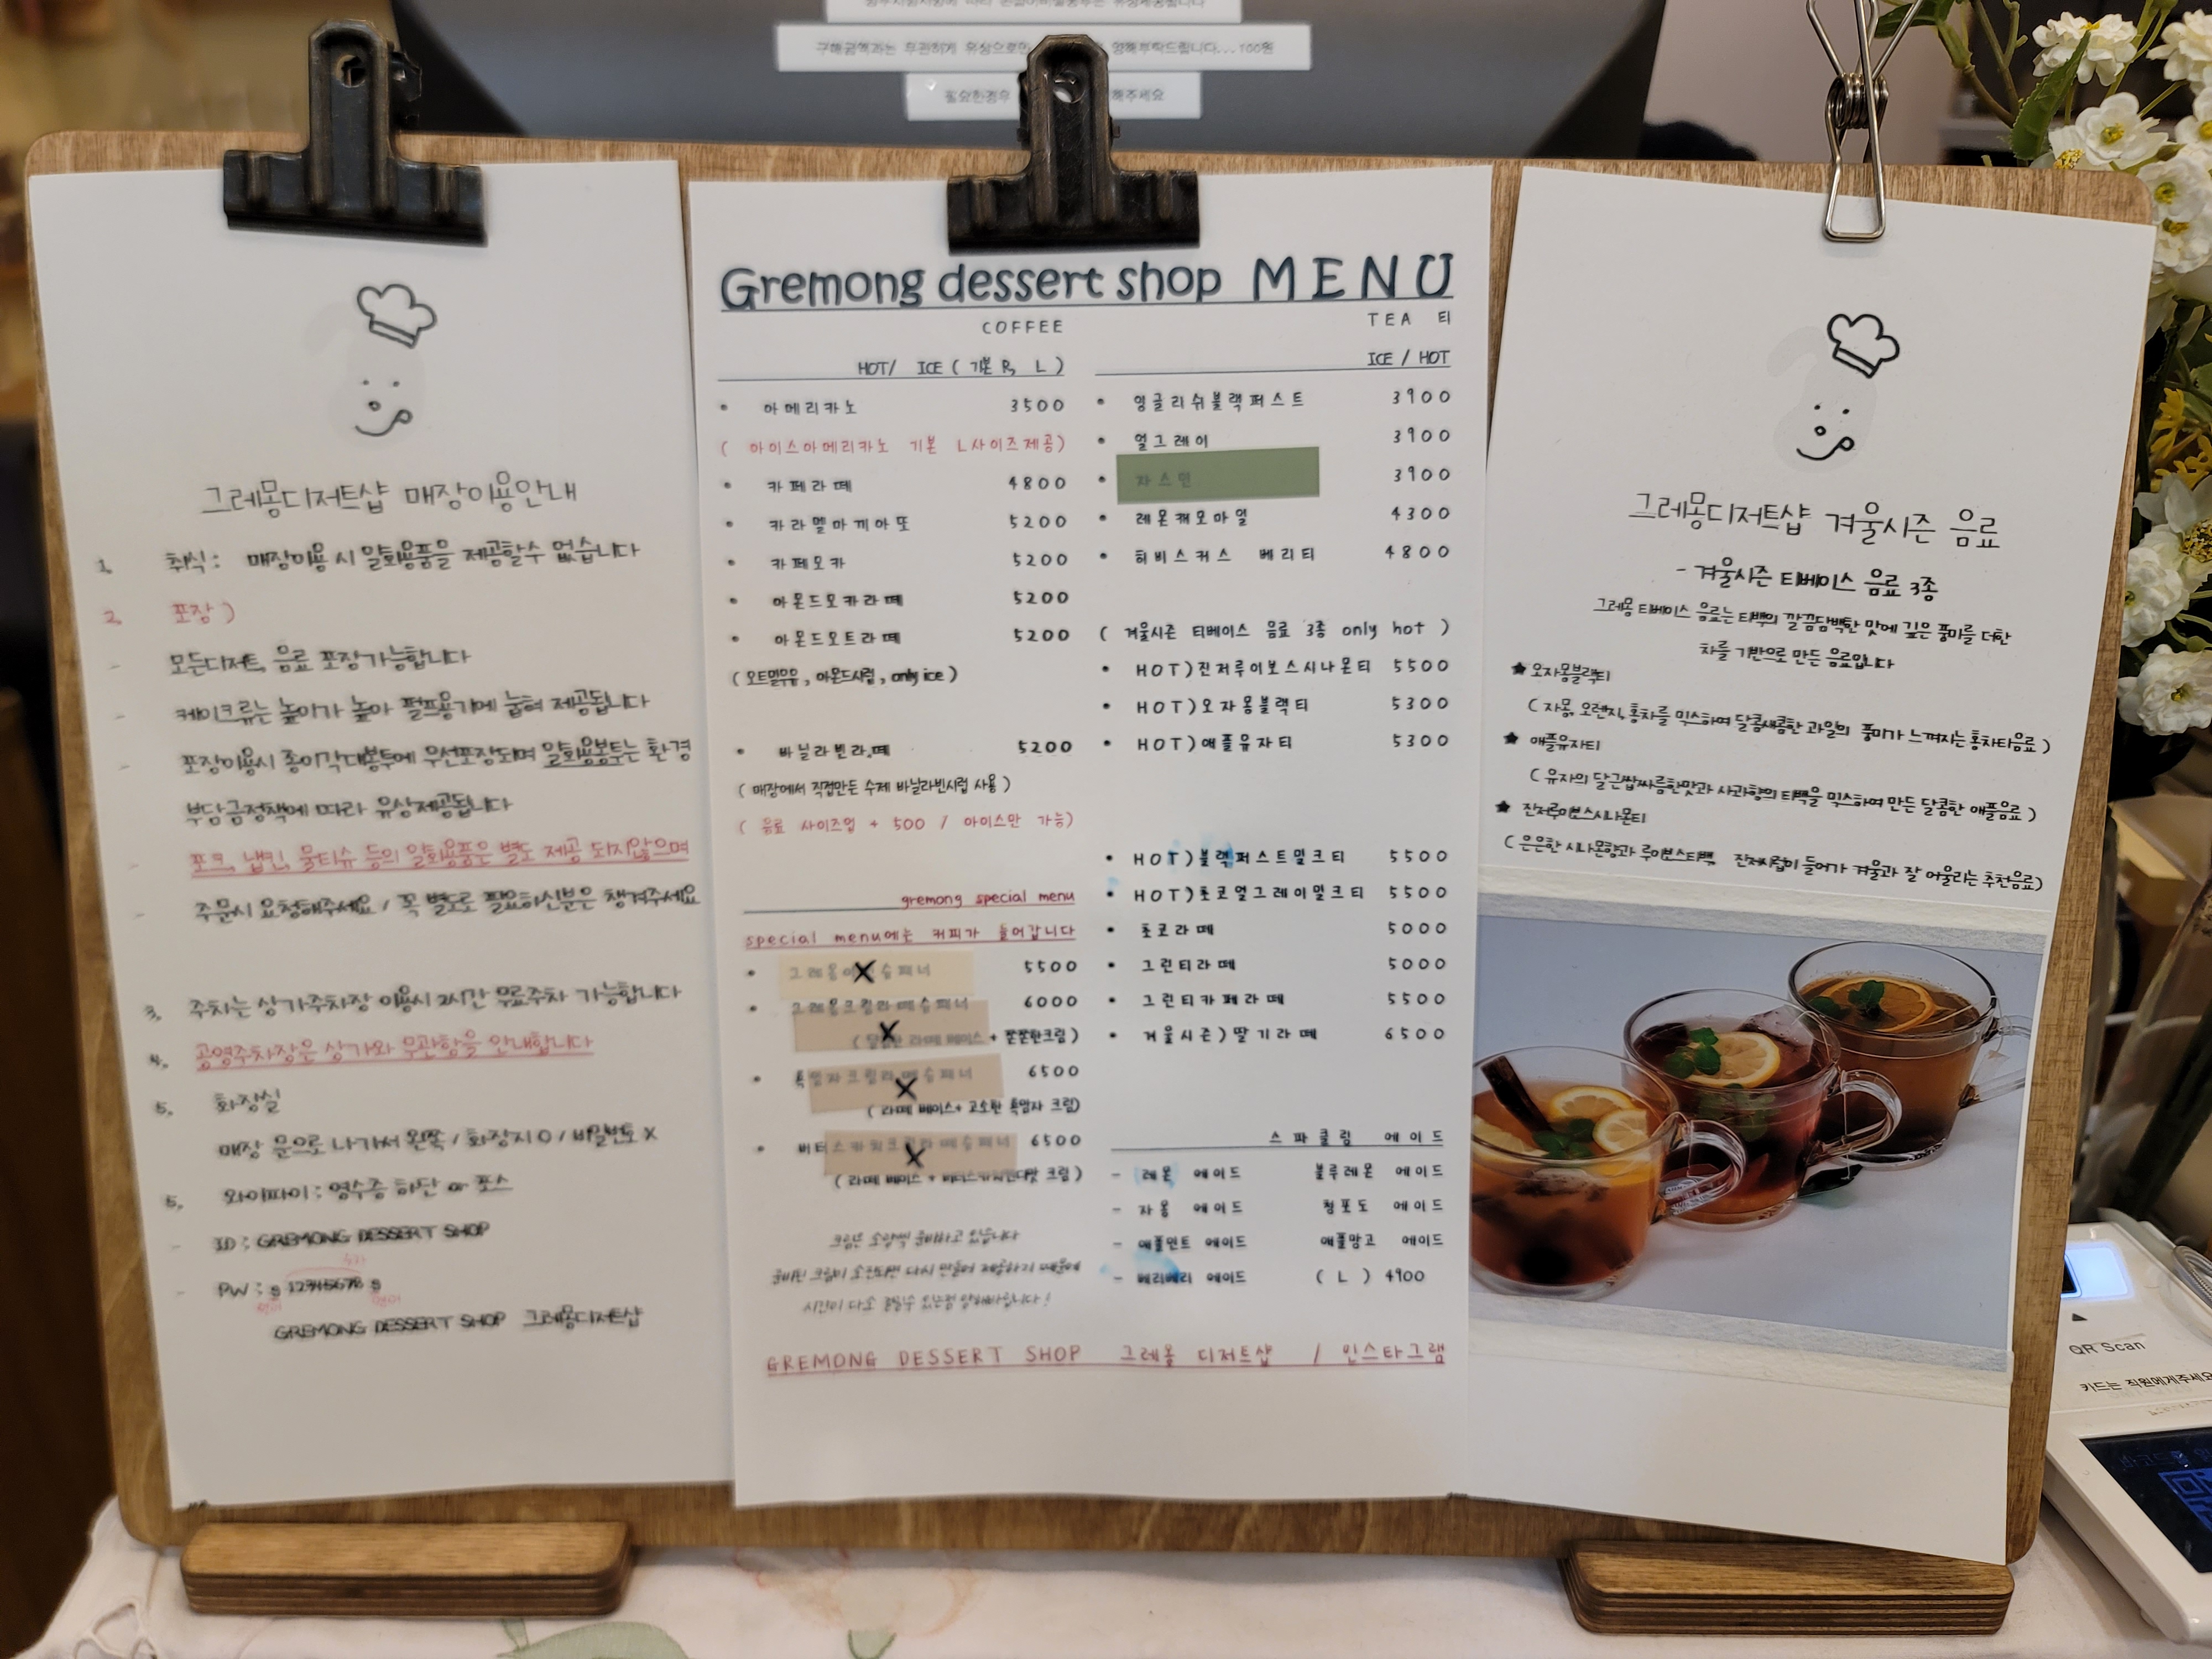 구매금액과는 무관하게 유상으로만 양해부탁드립니다...100원
필요한경우 해주세요
그레몽디저트샵 매장이용안내
1. 취식 : 매장이용 시 일회용품을 제공할수 없습니다
2. 포장 )
- 모든디저트, 음료 포장가능합니다
- 케이크류는 높이가 높아 펄프용기에 눕혀 제공됩니다
- 포장이용시 종이각대봉투에 우선포장되며 일회용봉투는 환경
부담금정책에 따라 유상제공됩니다
- 포크, 냅킨, 물티슈 등의 일회용품은 별도 제공 되지않으며
- 주문시 요청해주세요 / 꼭 별도로 필요하신분은 챙겨주세요
3. 주차는 상가주차장 이용시 2시간 무료주차 가능합니다
4. 공영주차장은 상가와 무관함을 안내합니다
5. 화장실
매장 문으로 나가서 왼쪽 / 화장지 O / 비밀번호 X
5. 와이파이 : 영수증 하단 or 포스
- ID : GREMONG DESSERT SHOP
- PW : g 12345678 g
GREMONG DESSERT SHOP 그레몽디저트샵
Gremong dessert shop MENU
COFFEE
HOT/ ICE ( 기본 R, L )
• 아메리카노 3500
( 아이스아메리카노 기본 L사이즈제공)
• 카페라떼 4800
• 카라멜마끼아또 5200
• 카페모카 5200
• 아몬드모카라떼 5200
• 아몬드오트라떼 5200
( 오트밀우유 , 아몬드시럽 , only ice )
• 바닐라빈라떼 5200
( 매장에서 직접만든 수제 바닐라빈시럽 사용 )
( 음료 사이즈업 + 500 / 아이스만 가능)
gremong special menu
special menu에는 커피가 들어갑니다
• 그레몽아 슈페너 5500
• 그레몽크림라떼슈페너 6000
( 라떼 베이스 + 쫀쫀한크림 )
• 흑임자크림라떼슈페너 6500
( 라떼 베이스+ 고소한 흑임자 크림)
• 버터스카치크림라떼슈페너 6500
( 라떼 베이스 + 버터스카치캔디맛 크림 )
크림은 소량씩 준비하고 있습니다
준비된 크림이 소진되면 다시 만들어 제공하기 때문에
시간이 다소 걸릴수 있는점 양해바랍니다 !
TEA 티
ICE / HOT
• 잉글리쉬블랙퍼스트 3900
• 얼그레이 3900
• 자스민 3900
• 레몬캐모마일 4300
• 히비스커스 베리티 4800
( 겨울시즌 티베이스 음료 3종 only hot )
• HOT)진저루이보스시나몬티 5500
• HOT)오자몽블랙티 5300
• HOT)애플유자티 5300
• HOT)블랙퍼스트밀크티 5500
• HOT)초코얼그레이밀크티 5500
• 초코라떼 5000
• 그린티라떼 5000
• 그린티카페라떼 5500
• 겨울시즌)딸기라떼 6500
스파클링 에이드
- 레몬 에이드 블루레몬 에이드
- 자몽 에이드 청포도 에이드
- 애플민트 에이드 애플망고 에이드
- 베리베리 에이드 ( L ) 4900
GREMONG DESSERT SHOP 그레몽 디저트샵 / 인스타그램
그레몽디저트샵 겨울시즌 음료
- 겨울시즌 티베이스 음료 3종
그레몽 티베이스 음료는 티백의 깔끔담백한 맛에 깊은 풍미를 더한
차를 기반으로 만든 음료입니다
★ 오자몽블랙티
( 자몽, 오렌지, 홍차를 믹스하여 달콤새콤한 과일의 풍미가 느껴지는 홍차티음료 )
★ 애플유자티
( 유자의 달근쌉싸름한맛과 사과향의 티백을 믹스하여 만든 달콤한 애플음료 )
★ 진저루이보스시나몬티
( 은은한 시나몬향과 루이보스티백 진저시럽이 들어가 겨울과 잘 어울리는 추천음료)
QR Scan
카드는 직원에게주세요